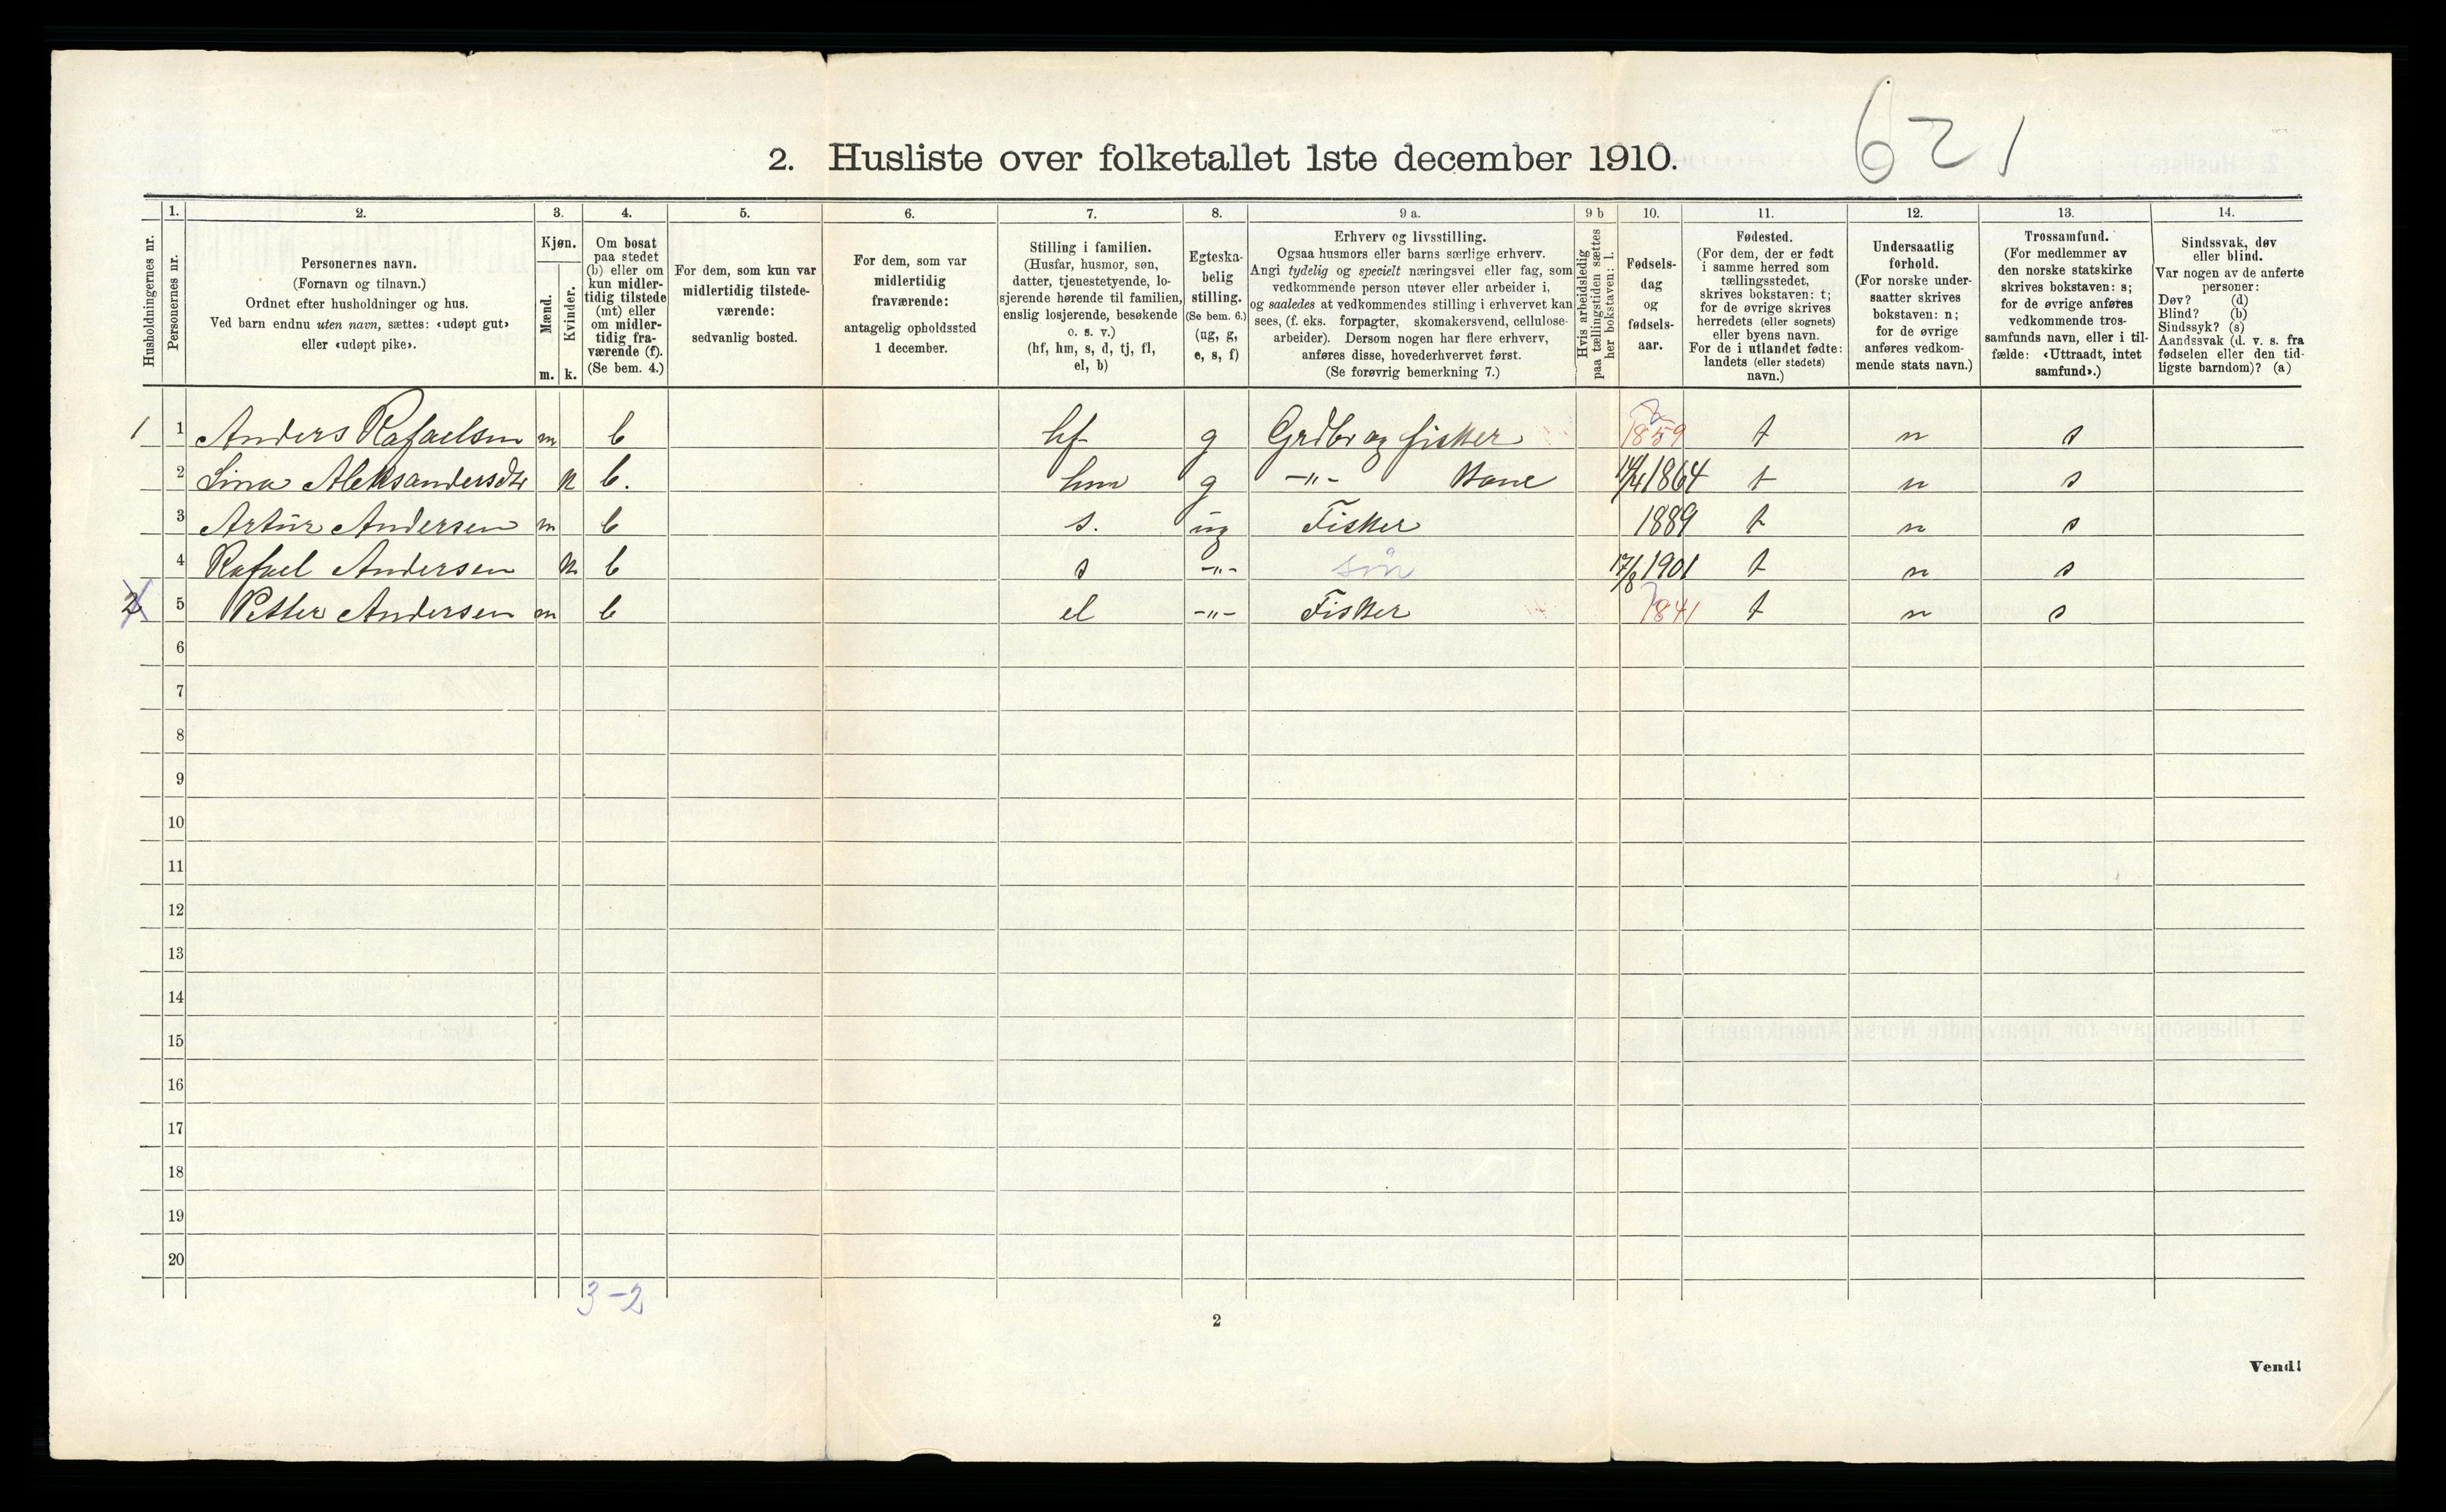 621
2. Husliste over folketallet 1ste december 1910.
Husholdningernes nr.
1.
Personernes nr.
2.
Personernes navn.
(Fornavn og tilnavn.)
Ordnet efter husholdninger og hus.
Ved barn endnu uten navn, sættes: «udøpt gut»
eller «udøpt pike».
3.
Kjøn.
Mænd.
Kvinder.
m. k.
4.
Om bosat
paa stedet
(b) eller om
kun midler-
tidig tilstede
(mt) eller
om midler-
tidig fra-
værende (f).
(Se bem. 4.)
5.
For dem, som kun var
midlertidig tilstede-
værende:
sedvanlig bosted.
6.
For dem, som var
midlertidig
fraværende:
antagelig opholdssted
1 december.
7.
Stilling i familien.
(Husfar, husmor, søn,
datter, tjenestetyende, lo-
sjerende hørende til familien,
enslig losjerende, besøkende
o. s. v.)
(hf, hm, s, d, tj, fl,
el, b)
8.
Egteska-
belig
stilling.
(Se bem. 6.)
(ug, g,
e, s, f)
9 a.
Erhverv og livsstilling.
Ogsaa husmors eller barns særlige erhverv.
Angi tydelig og specielt næringsvei eller fag, som
vedkommende person utøver eller arbeider i,
og saaledes at vedkommendes stilling i erhvervet kan
sees, (f. eks. forpagter, skomakersvend, cellulose-
arbeider). Dersom nogen har flere erhverv,
anføres disse, hovederhvervet først.
(Se forøvrig bemerkning 7.)
9 b
Hvis arbeidsledig
paa tællingstiden sættes
her bokstaven: l.
10.
Fødsels-
dag
og
fødsels-
aar.
11.
Fødested.
(For dem, der er født
i samme herred som
tællingsstedet,
skrives bokstaven: t;
for de øvrige skrives
herredets (eller sognets)
eller byens navn.
For de i utlandet fødte:
landets (eller stedets)
navn.)
12.
Undersaatlig
forhold.
(For norske under-
saatter skrives
bokstaven: n;
for de øvrige
anføres vedkom-
mende stats navn.)
13.
Trossamfund.
(For medlemmer av
den norske statskirke
skrives bokstaven: s;
for de øvrige anføres
vedkommende tros-
samfunds navn, eller i til-
fælde: «Uttraadt, intet
samfund».)
14.
Sindssvak, døv
eller blind.
Var nogen av de anførte
personer:
Døv? (d)
Blind? (b)
Sindssyk? (s)
Aandssvak (d. v. s. fra
fødselen eller den tid-
ligste barndom)? (a)
1 1 Anders Rafaelsen m b hf g Grdbr og fisker 1859 t n s
2 Lina Aleksandersdtr k b. hm g -"- Kone 14/4 1864 t n s
3 Artur Andersen m b s. ug Fisker 1889 t n s
4 Rafael Andersen k b s -"- søn 17/8 1901 t n s
2 5 Petter Andersen m b el -"- Fisker 1841 t n s
6
7
8
9
10
11
12
13
14
15
16
17
18
19
20
3-2
2
Vend!